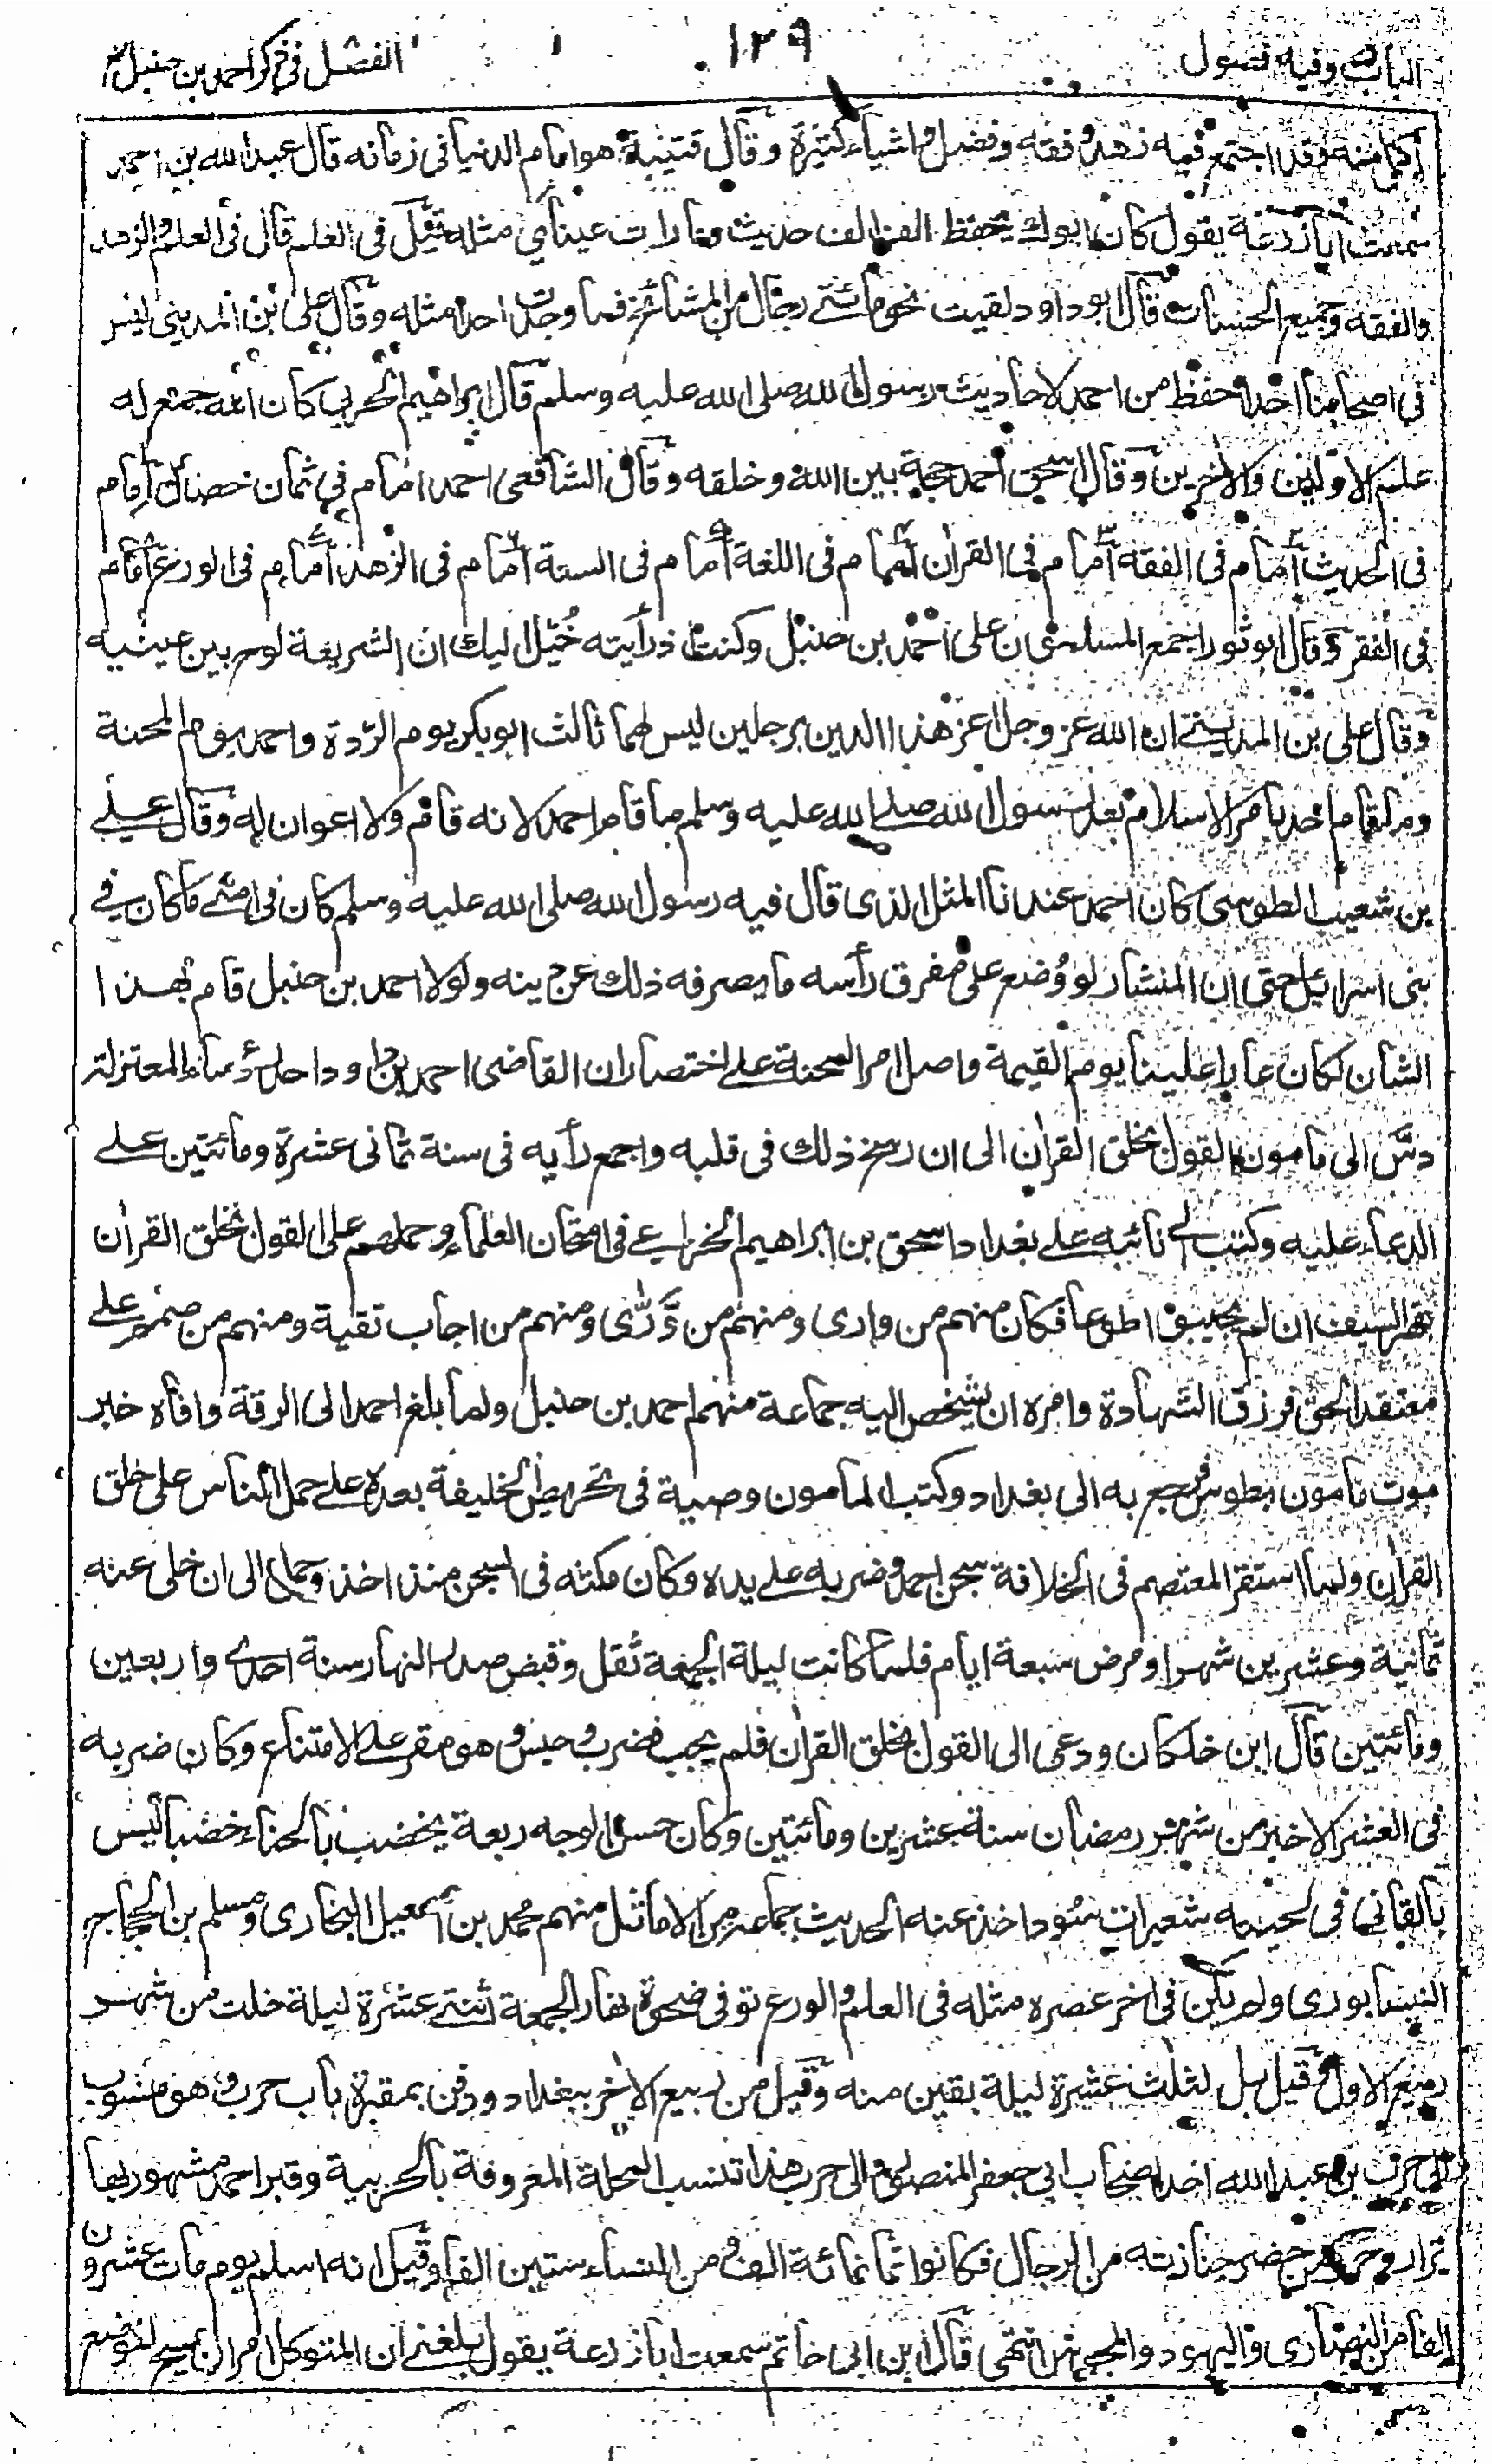 الباب وفيه فصول
١٣٩
الفصل في ذكر احمد بن حنبل
اكمامنه وقد اجتمع فيه زهد وفقه وفضل واشياء كثيرة وقال قتيبة هو امام الدنيا في زمانه قال عبد الله بن احمد
سمعت ابا زرعة يقول كان ابوك يحفظ الف الف حديث وما رات عيناي مثله فقيل في العلم قال في العلم والزهد
والفقه وجميع الحسنات قال ابو داود لقيت نحو مائتے رجال من المشائخ فما وجدت احدا مثله وقال علي بن المديني ليس
في اصحابنا احدا حفظ من احمد لاحاديث رسول الله صلى الله عليه وسلم قال ابراهيم الحربي كان الله جمع له
علم الاولين والآخرين وقال اسحق احمد حجة بين الله وخلقه وقال الشافعى احمد امام في ثمان خصال امام
في الحديث امام في الفقه امام في القران امام في اللغة امام في السنة امام في الزهد امام في الورع امام
في الفقر وقال ابو ثور اجمع المسلمون على احمد بن حنبل وكنت اذ رأيته خُيّل اليك ان الشريعة لوح بين عينيه
وقال على بن المديني ان الله عز وجل اعز هذا الدين برجلين ليس لهما ثالث ابو بكر يوم الردة واحمد يوم المحنة
وما قام احد بامر الاسلام بعد رسول الله صلے الله عليه وسلم ما قام احمد لانه قام ولا اعوان له وقال علے
بن شعيب الطوسى كان احمد عندنا المثل الذى قال فيه رسول الله صلى الله عليه وسلم كان في امتے ما كان في
بنى اسرائيل حتى ان المنشار لو وُضع على مفرق رأسه ما يصرفه ذلك عن دينه ولولا احمد بن حنبل قام بهذا
الشان لكان عارا علينا يوم القيمة واصل امر المحنة علے اختصار ان القاضى احمد بن داود احد رؤساء المعتزلة
دسّ الى مامون القول بخلق القران الى ان رسخ ذلك في قلبه واجمع رأيه في سنة ثماني عشرة ومائتين علے
الدعاء عليه وكتب الى نائبه علے بغداد اسحق بن ابراهيم الخزاعے في امتحان العلماء وحملهم على القول بخلق القران
قهر السيف ان لم يجيبوا طوعا فكان منهم من وارى ومنهم من وَرّٰى ومنهم من اجاب تقية ومنهم من صمم علے
معتقد الحق فرزق الشهادة وامره ان يشخص اليه جماعة منهم احمد بن حنبل ولما بلغ احمد الى الرقة وافاه خبر
موت مامون بطوس فرجع به الى بغداد وكتب المامون وصية في تحريض الخليفة بعده علے حمل الناس على خلق
القران ولما استقر المعتصم في الخلافة سجن احمد وضربه علے يده وكان مكثه في السجن منذ اخذ وحمل الى ان خلى عنه
ثمانية وعشرين شهرا ومرض سبعة ايام فلما كانت ليلة الجمعة ثقل وقبض صدر النهار سنة احدے واربعين
ومائتين قال ابن خلكان ودعى الى القول بخلق القران فلم يجب فضرب وحبس وهو مقر علے الامتناع وكان ضربه
في العشر الاخير من شهر رمضان سنة عشرين ومائتين وكان حسن الوجه ربعة يخضب بالحناء خضبا ليس
بالقاني في لحيته شعيرات سُود اخذ عنه الحديث جماعة من الاماثل منهم محمد بن اسمعيل البخارى ومسلم بن الحجاج
النيسابورى ولم يكن في اخر عصره مثله في العلم والورع توفي ضحوة نهار الجمعة اثنتے عشرة ليلة خلت من شهر
ربيع الاول وقيل بل لثلث عشرة ليلة بقين منه وقيل من ربيع الاخر ببغداد ودفن بمقبرة باب حرب وهو منسوب
الى حرب بن عبد الله احد اصحاب ابي جعفر المنصور والى حرب هذا تنسب المحلة المعروفة بالحربية وقبر احمد مشهور بها
يزار وحزر من حضر جنازته من الرجال فكانوا ثمانمائة الف ومن النساء ستين الفا وقيل انه اسلم يوم مات عشرون
الفا من النصارى واليهود والمجوس انتهى قال ابن ابي حاتم سمعت ابا زرعة يقول بلغنے ان المتوكل امر ان يمسح الموضع